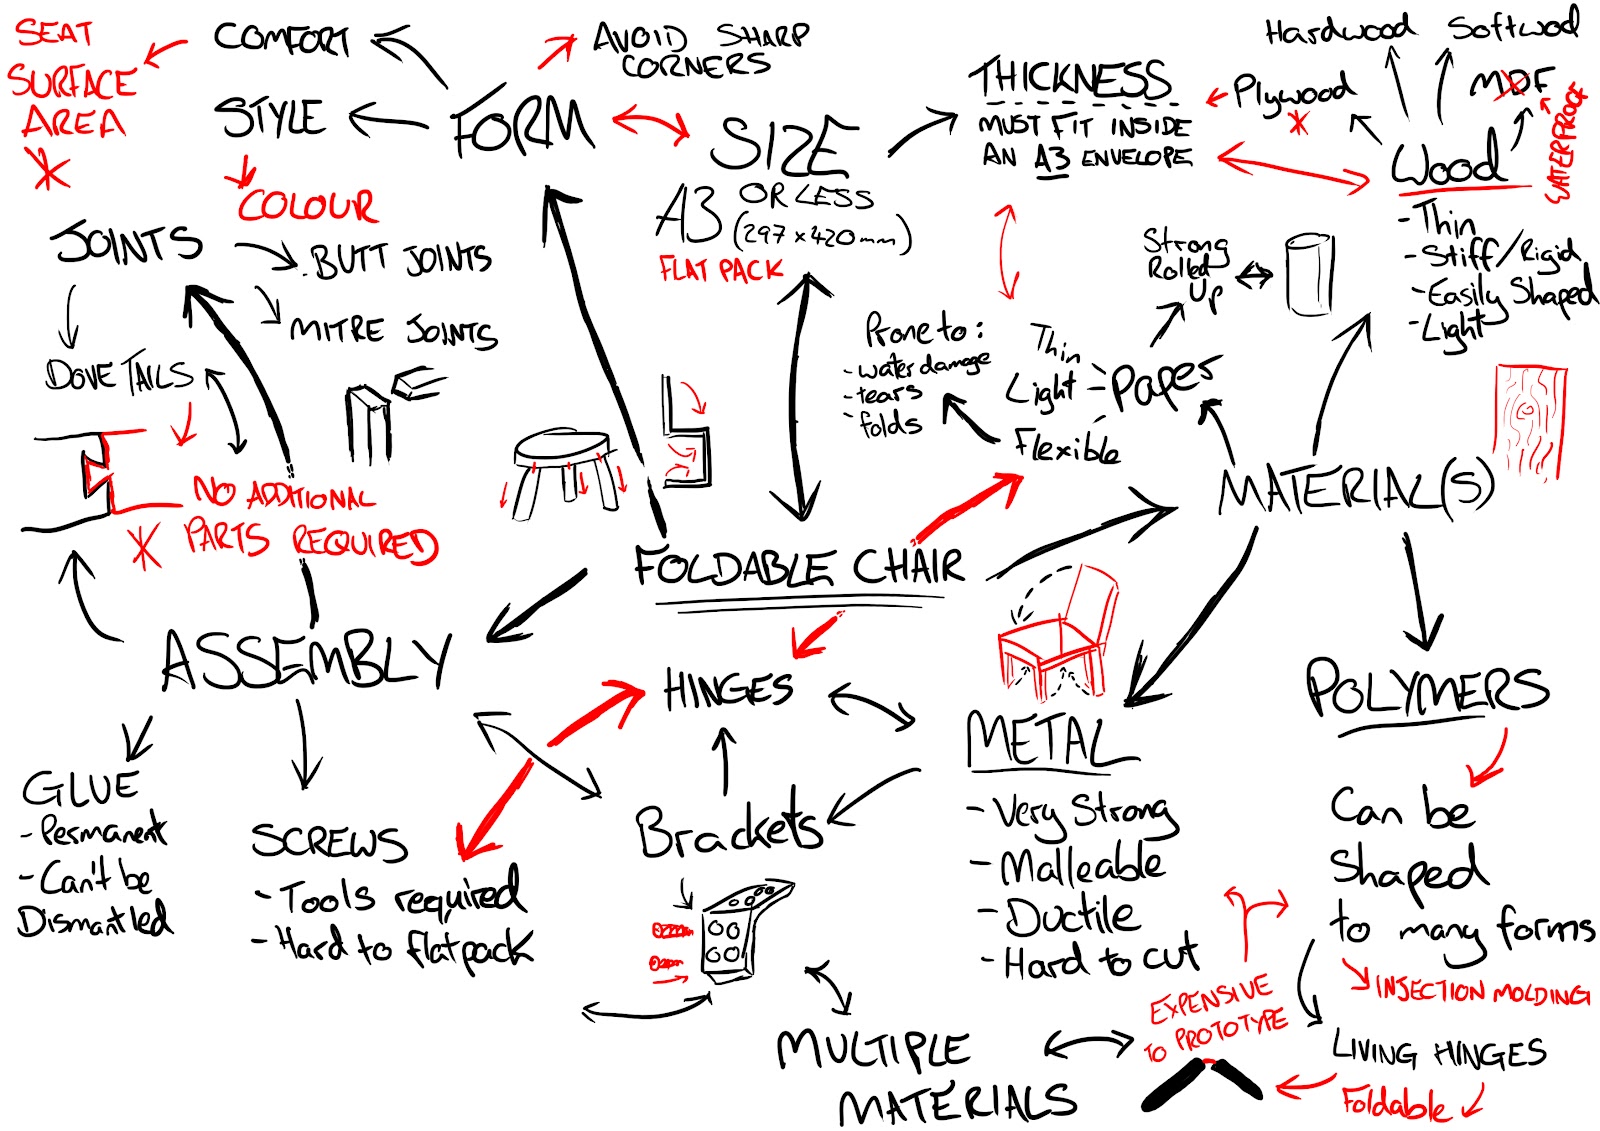 SEAT
SURFACE
AREA
COMFORT
STYLE
COLOUR
FORM
AVOID SHARP
CORNERS
SIZE
A3 OR LESS
(297 x 420mm)
FLAT PACK
THICKNESS
MUST FIT INSIDE
AN A3 ENVELOPE
Hardwood
Softwod
Plywood
MDF
WATERPROOF
Wood
- Thin
- Stiff/Rigid
- Easily Shaped
- Light
Strong
Rolled
Up
Prone to:
- water damage
- tears
- folds
Thin
Light
Flexible
Paper
MATERIAL(S)
JOINTS
BUTT JOINTS
MITRE JOINTS
DOVE TAILS
NO ADDITIONAL
PARTS REQUIRED
FOLDABLE CHAIR
ASSEMBLY
GLUE
- Permanent
- Can't be
Dismantled
SCREWS
- Tools required
- Hard to flatpack
HINGES
Brackets
METAL
- Very Strong
- Malleable
- Ductile
- Hard to cut
MULTIPLE
MATERIALS
POLYMERS
Can be
Shaped
to many forms
INJECTION MOLDING
EXPENSIVE
TO PROTOTYPE
LIVING HINGES
Foldable